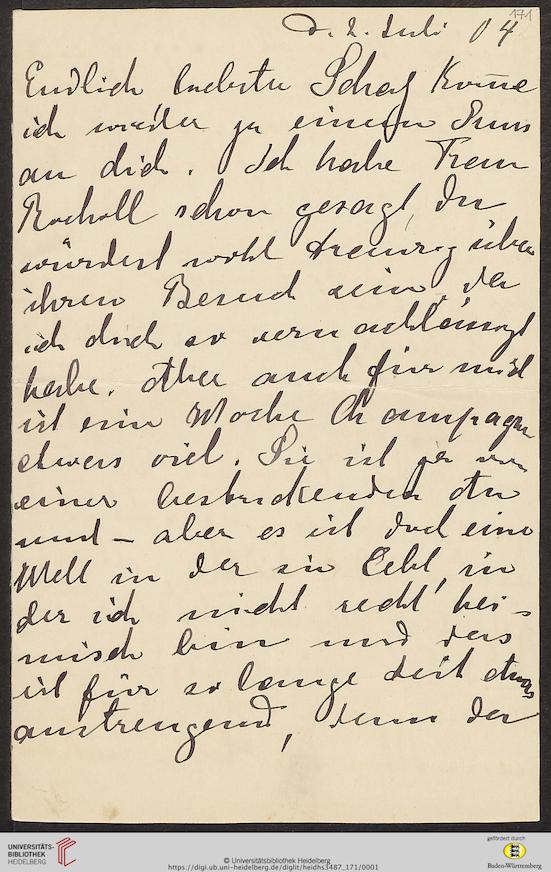 171
d. 2. Juli 04
Endlich liebster Schatz komme
ich wieder zu einem Gruss
an dich. Ich habe Frau
Rocholl schon gesagt, du
würdest wohl traurig über
ihren Besuch sein, da
ich dich so vernachlässigt
habe. Aber auch für mich
ist eine Woche Champagner
etwas viel. Sie ist ja von
einer bestrickenden Art
und – aber es ist doch eine
Welt in der sie lebt, in
der ich nicht recht hei-
misch bin und das
ist für so lange Zeit etwas
anstrengend, denn der
UNIVERSITÄTS-
BIBLIOTHEK
HEIDELBERG
© Universitätsbibliothek Heidelberg
https://digi.ub.uni-heidelberg.de/diglit/heidhs3487_171/0001
gefördert durch
Baden-Württemberg